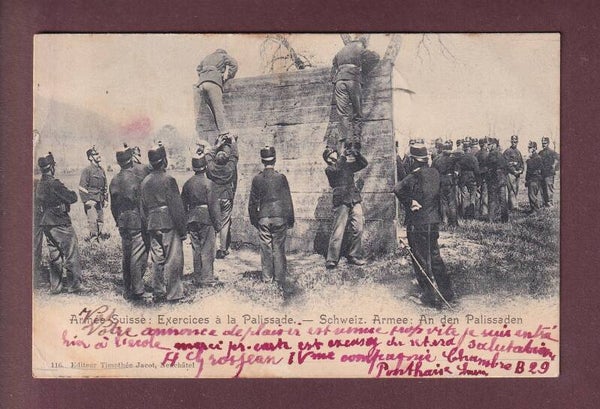 Armée Suisse: Exercices à la Palissade. — Schweiz. Armee: An den Palissaden
Votre annonce de plaisir est venue trop vite je suis entré
hin à l'école merci pr. carte et excusez du retard salutation
H Grosjean IVme compagnie Chambre B 29
Ponthaise
116. Editeur Timothée Jacot, Neuchâtel